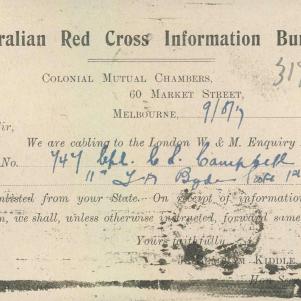 ralian Red Cross Information Bu
COLONIAL MUTUAL CHAMBERS,
60 MARKET STREET,
MELBOURNE, 9/8/17
ir,
We are cabling to the London W. & M. Enquiry
No. 747 Cpl. C. L. Campbell
11th
nlisted from your State. On receipt of information
n, we shall, unless otherwise instructed, forward same
Yours faithfully
KIDDLE
Hon